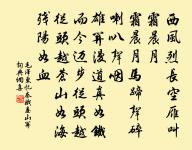 西風烈長空雁叫
霜晨月
霜晨月馬蹄聲碎
喇叭聲咽
雄關漫道真如鐵
而今邁步從頭越
從頭越蒼山如海
殘陽如血
毛澤東憶秦娥婁山關
詞典網